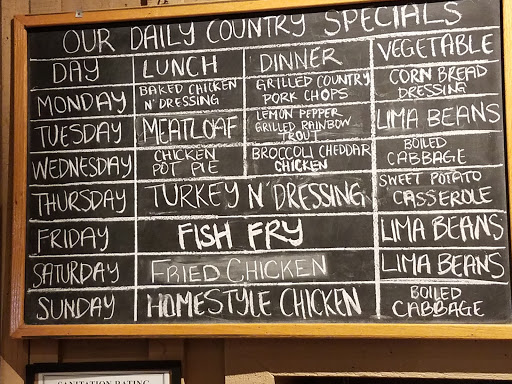 OUR DAILY COUNTRY SPECIALS
DAY LUNCH DINNER VEGETABLE
MONDAY BAKED CHICKEN N' DRESSING GRILLED COUNTRY PORK CHOPS CORN BREAD DRESSING
TUESDAY MEATLOAF LEMON PEPPER GRILLED RAINBOW TROUT LIMA BEANS
WEDNESDAY CHICKEN POT PIE BROCCOLI CHEDDAR CHICKEN BOILED CABBAGE
THURSDAY TURKEY N' DRESSING SWEET POTATO CASSEROLE
FRIDAY FISH FRY LIMA BEANS
SATURDAY FRIED CHICKEN LIMA BEANS
SUNDAY HOMESTYLE CHICKEN BOILED CABBAGE
SANITATION RATING